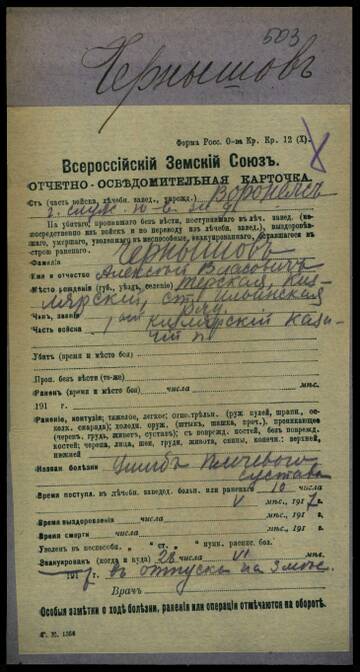 503
Чернышовъ
Форма Росс. О-ва Кр. Кр. 12 (X).
Всероссійскій Земскій Союзъ.
ОТЧЕТНО-ОСВѢДОМИТЕЛЬНАЯ КАРТОЧКА.
Отъ (часть войска, лѣчебн. завед., учрежд.)
На убитаго, пропавшаго безъ вѣсти, поступившаго въ лѣч. завед. (не-
посредственно изъ войскъ и по переводу изъ лѣчебн. завед.), выздоровѣв-
шаго, умершаго, уволеннаго въ неспособные, эвакуированнаго, оставшагося въ
строю раненаго.
Фамилія Чернышовъ
Имя и отчество Алексѣй Власовичъ
Мѣсто рожденія (губ., уѣздъ, селеніе) Терская, Киз-
лярскій, ст. Ильинская
Чинъ, званіе
Часть войска 1 Кизлярскій каза-
чій п.
Убитъ (время и мѣсто боя)
Проп. безъ вѣсти (то-же)
Раненъ (время и мѣсто боя) числа мѣс.
191 г.
Раненіе, контузія; тяжелое, легкое; огнестрѣльн. (руж. пулей, шрапн., оск-
колк. снаряда); холодн. оруж. (штык., шашка, проч.), проникающее
(череп., грудь, животъ, суставъ); съ поврежд. костей, безъ поврежд.
костей; черепа, лица, шеи, груди, живота, спины, конечн.: верхней,
нижней
Назван. болѣзни Ушибъ плечевого
сустава
Время поступл. въ лѣчебн. заведен. больн. или раненаго 10 числа
V мѣс., 1917 г.
Время выздоровленія числа мѣс., 191 г.
Время смерти числа мѣс., 191 г.
Уволенъ въ неспособн. „ “ ст. „ “ пункт. распис. бол.
Эвакуированъ (когда и куда) 28 числа VI мѣс.
1917 г. въ отпускъ на 3 мѣс.
Врачъ
Особыя замѣтки о ходѣ болѣзни, раненія или операціи отмѣчаются на оборотѣ.